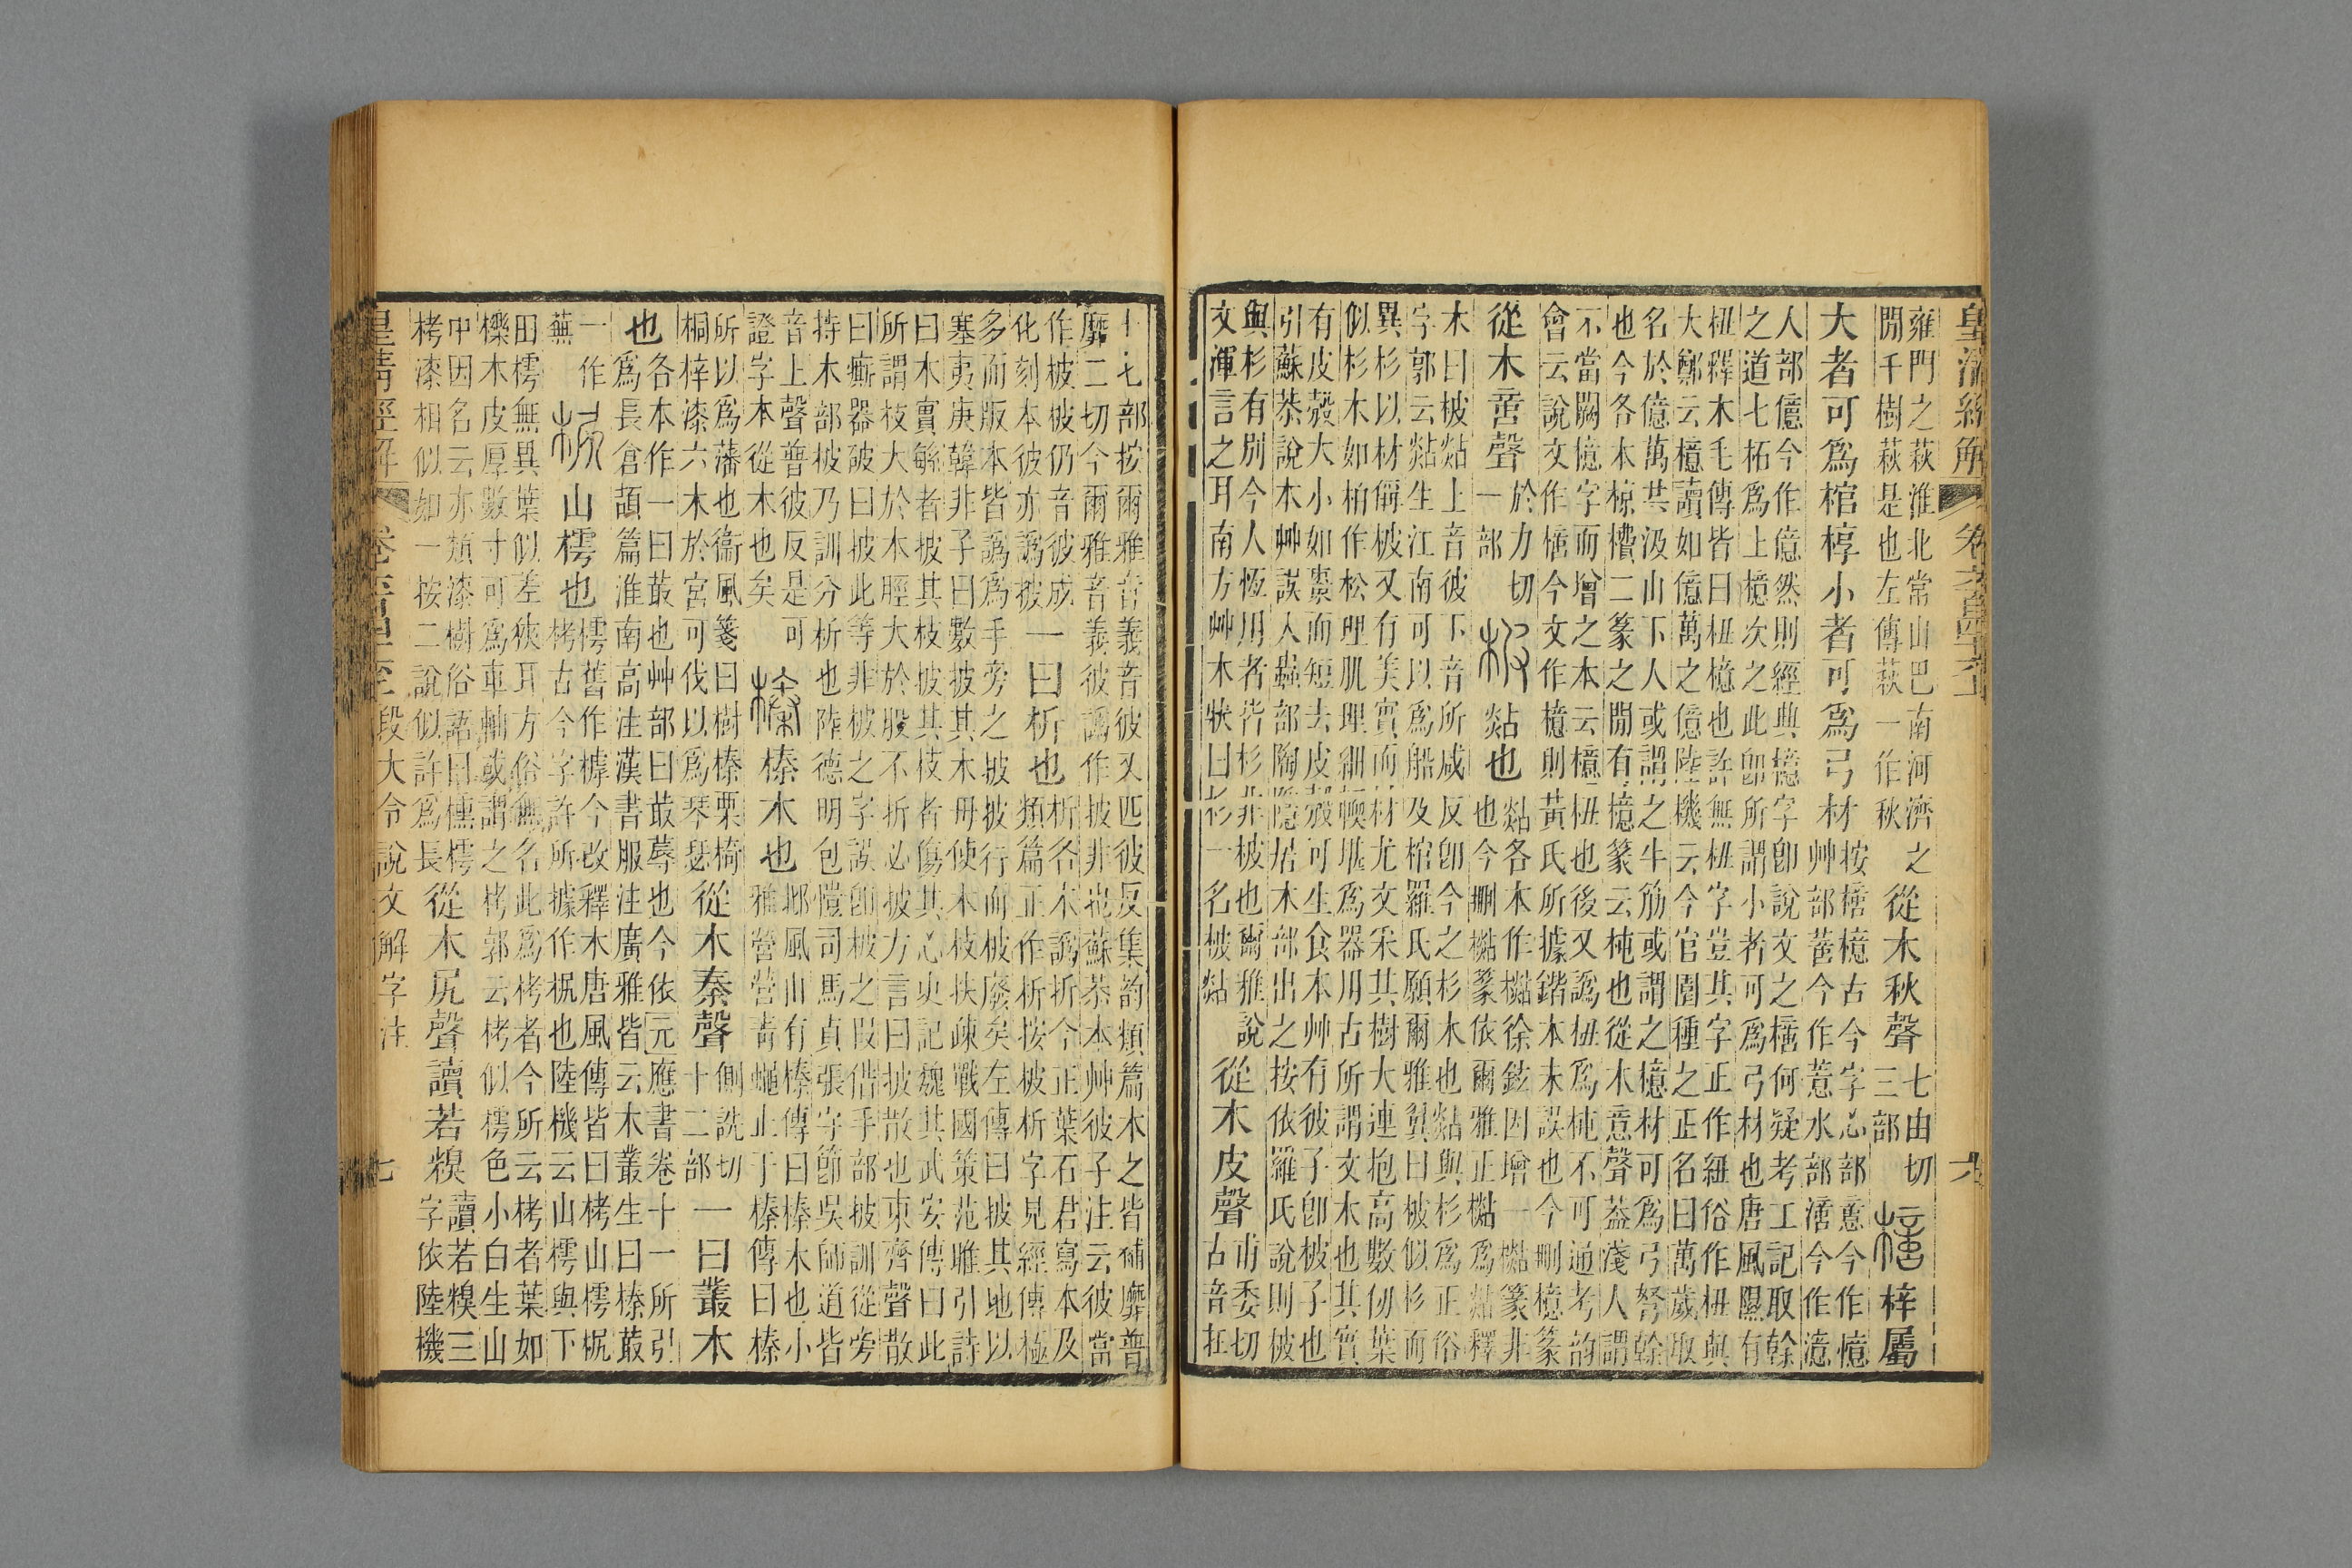 皇清經解
六
雍門之萩淮北常山巴南河濟之
閒千樹萩是也左傳萩一作秋
從木秋聲
七由切
三部
梓屬
大者可爲棺椁小者可爲弓材
按㯆檍古今字心部意今作憶
艸部䔬今作薏水部澺今作澺
人部億今作億然則經典檍字卽說文之㯆何疑考工記取榦
之道七柘爲上檍次之此卽所謂小者可爲弓材也唐風隰有
杻釋木毛傳皆曰杻檍也許無杻字豈其字正作紐俗作杻與
大鄭云檍讀如億萬之億陸機云今官園種之正名曰萬歲取
名於億萬其汲山下人或謂之牛筋或謂之檍材可爲弓弩榦
也今各本椋檟二篆之閒有檍篆云杶也從木意聲葢淺人謂
不當闕檍字而增之本云檍杻也後又譌杻爲杶不可通考韵
會云說文作㯆今文作檍則黃氏所據鍇本未誤也今刪檍篆
從木啻聲
於力切
一部
柀
煔也
煔各本作檆徐鉉因增一檆篆非
也今刪檆篆依爾雅正檆爲煔釋
木曰柀煔上音彼下音所咸反卽今之杉木也煔與杉爲正俗
字郭云煔生江南可以爲船及棺羅氏願爾雅翼曰柀似杉而
異杉以材偁柀又有美實而材尤文采其樹大連抱高數仞葉
似杉木如柏作松理肌理細輭堪爲器用古所謂文木也其實
有皮殼大小如棗而短去皮殼可生食本艸有彼子卽柀子也
引蘇恭說木艸誤入蟲部陶隱居木部出之按依羅氏說則柀
與杉有別今人恆用者皆杉非柀也爾雅說
文渾言之耳南方艸木狀曰杉一名柀煔
從木皮聲
甫委切
古音在
十七部按爾雅音義音彼又匹彼反集韵類篇木之皆補靡普
靡二切今爾雅音義彼譌作披非也蘇恭本艸彼子注云彼當
作柀柀仍音彼成
化刻本彼亦譌披
一曰析也
析各本譌折今正葉石君寫本及
類篇正作析按柀析字見經傳極
多而版本皆譌爲手旁之披披行而柀廢矣左傳曰披其地以
塞夷庚韓非子曰數披其木毋使木枝扶疎戰國策范雎引詩
曰木實繇者披其枝披其枝者傷其心史記魏其武安傳曰此
所謂枝大於木脛大於股不折必披方言曰披散也東齊聲散
曰㾷器破曰披此等非柀之字誤卽柀之叚借手部披訓從旁
持木部柀乃訓分析也陸德明包愷司馬貞張守節吳師道皆
音上聲普彼反是可
證字本從木也矣
榛
榛木也
邶風山有榛傳曰榛木也小
雅營營靑蠅止于榛傳曰榛
所以爲藩也衞風箋曰樹榛栗椅
桐梓漆六木於宮可伐以爲琴瑟
從木秦聲
側詵切
十二部
一曰叢木
也
各本作一曰菆也艸部曰菆蓐也今依元應書卷十一所引
爲長倉頡篇淮南高注漢書服注廣雅皆云木叢生曰榛菆
一作
蕪
山樗也
樗舊作樗今改釋木唐風傳皆曰栲山樗㭒
栲古今字許所據作㭒也陸機云山樗與下
田樗無異葉似差狹耳方俗無名此爲栲者今所云栲者葉如
櫟木皮厚數寸可爲車輻或謂之栲郭云栲似樗色小白生山
中因名云亦類漆樹俗語曰櫄樗
栲漆相似如一按二說似許爲長
從木尻聲讀若糗
讀若糗三
字依陸機
皇清經解
段大令說文解字注
七